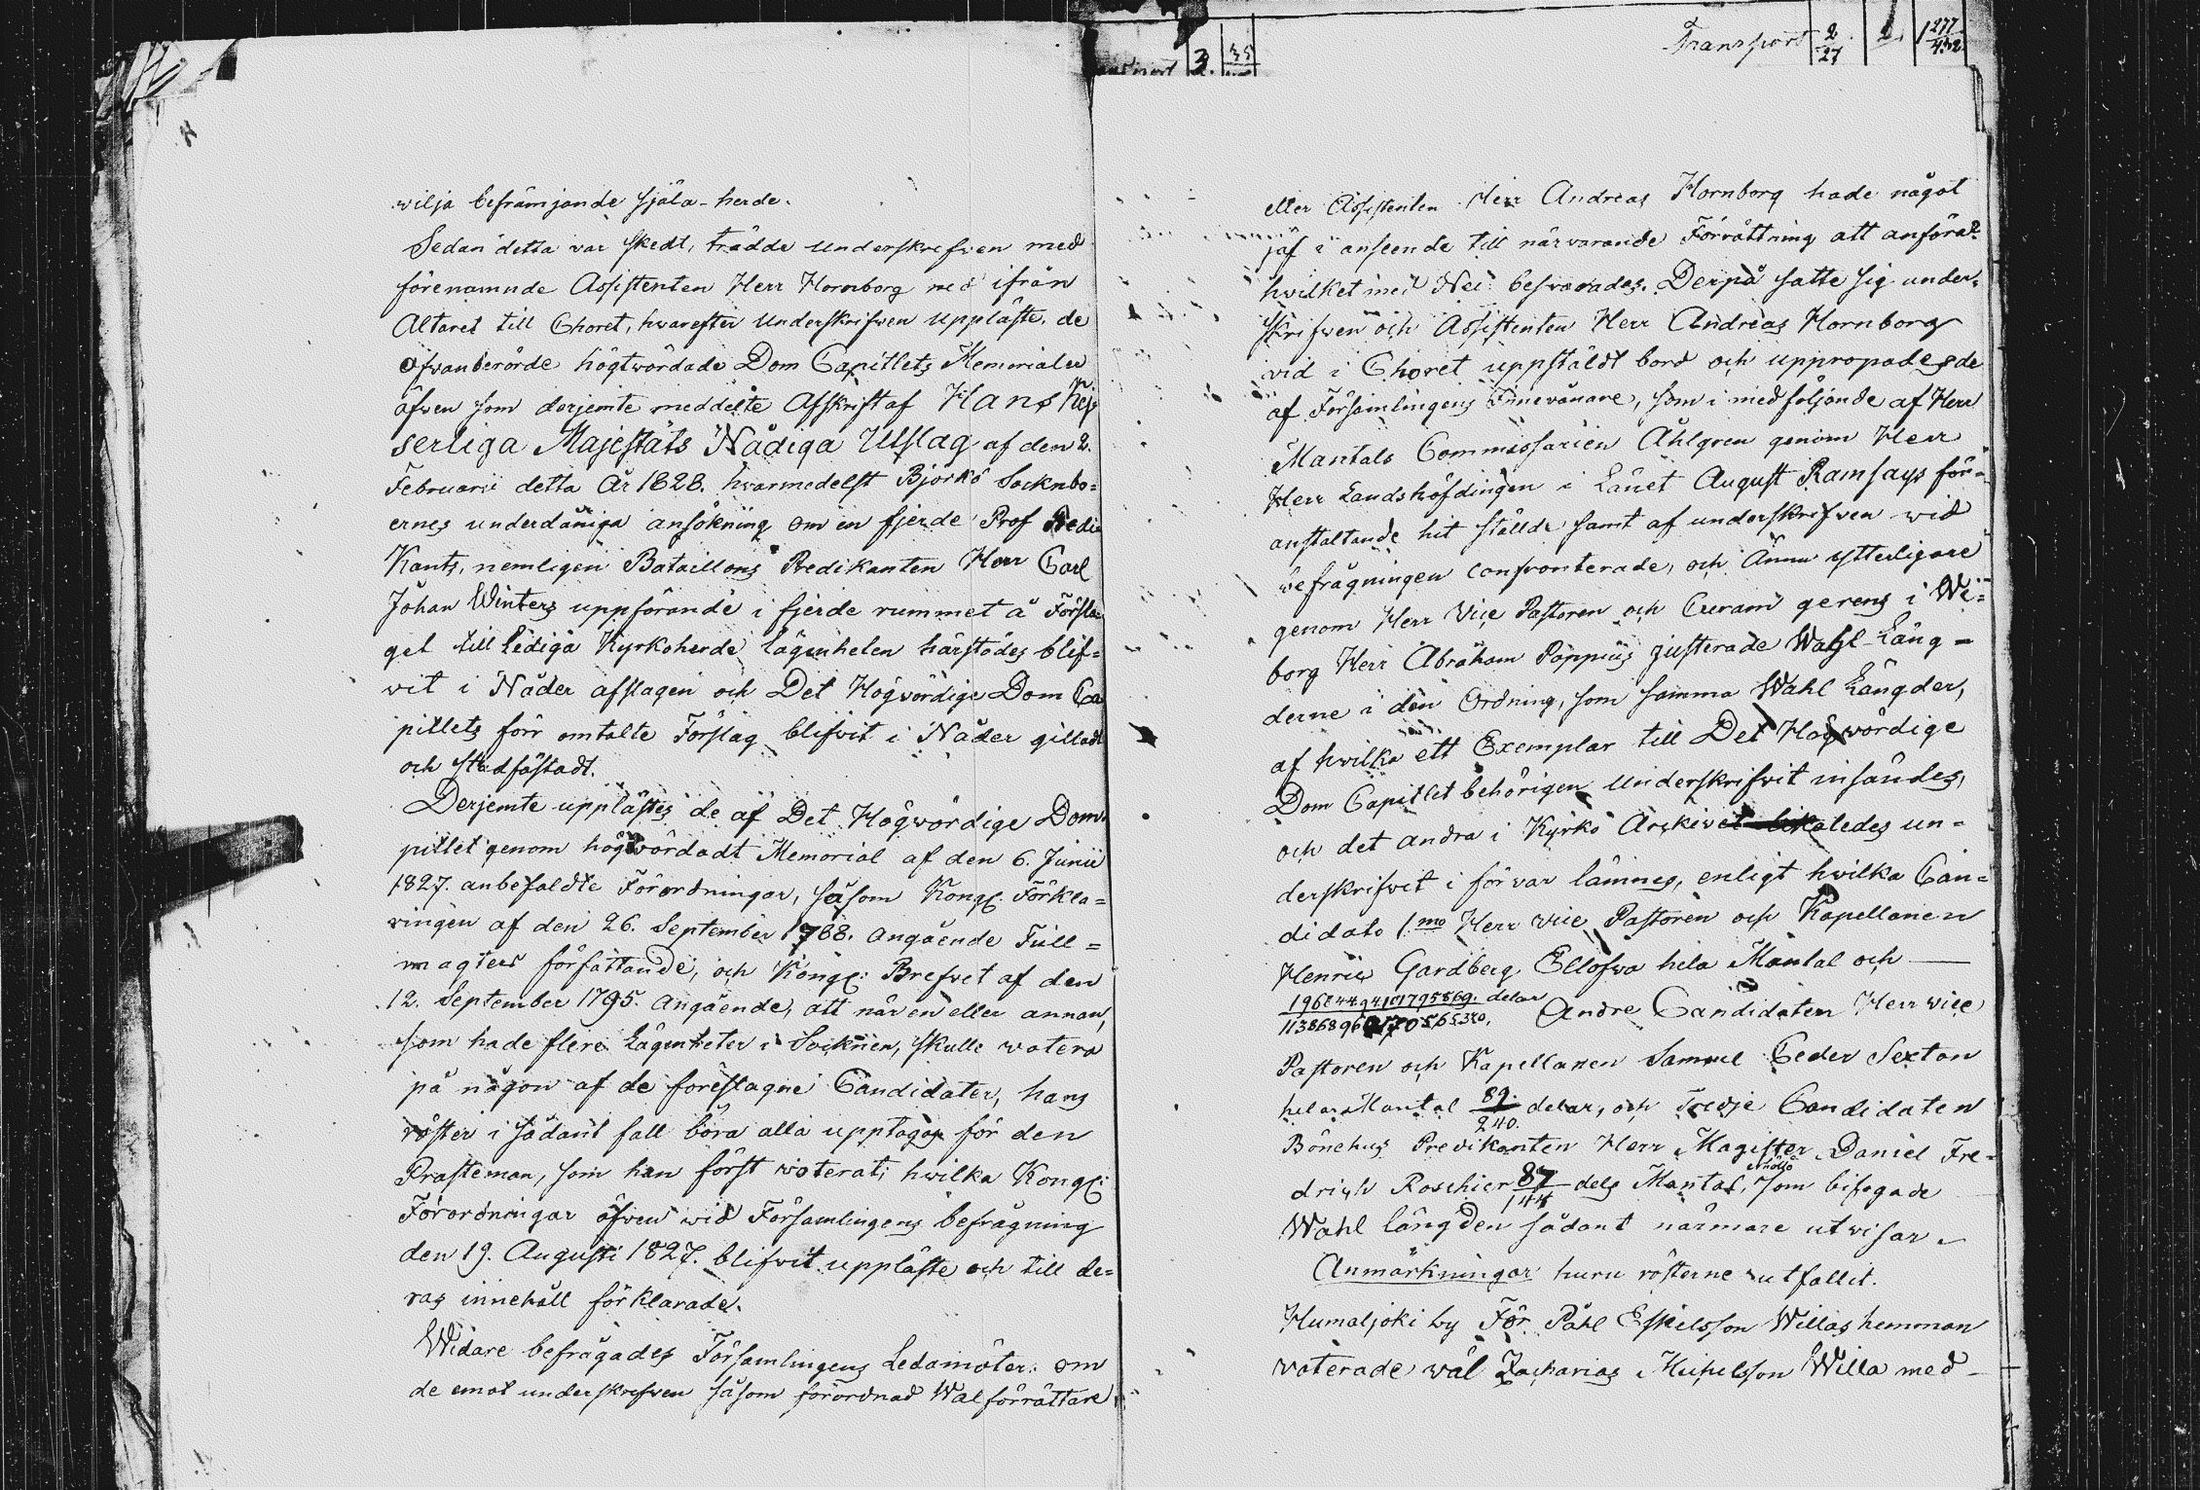 wilja befrämjande själa-herde.
Sedan detta var skedt, trädde underskrefwen med
förenamnde Assistenten Herr Hornborg ned ifrån
Altaret till Choret, hwarefter Underskrifwen uppläste, de
ofwanberörde högtwördade Dom Capitlets Memorialer
äfwen som derjemte meddelte Afskrift af Hans Kej
serliga Majestäts Nådiga Utslag af den 2.
Februarii detta År 1828. hvarmedelst Björkö Socknbo=
ernes underdåniga ansökning om en fjerde Prof Predi
Kants, nemligen Bataillons Predikanten Herr Carl
Johan Winters uppförande i fjerde rummet å Försla
get till Lediga Kyrkoherde lägenheten härstädes blif=
wit i Nåder afslagen och Det Högwördige Dom Ca
pitlets förr omtalte Förslag blifvit i Nåder gilladt
och stadfästadt.
Derjemte upplästes de af Det Högwördige Dom
pitlet genom högtwördadt Memorial af den 6. Junii
1827. anbefaldte Förordningar, såsom Kongl. Förkla=
ringen af den 26. September 1788. angående Full=
magters författande, och Kongl: Brefvet af den
12. September 1795. angående, att när en eller annan,
som hade flere Lägenheter i Socknen, skulle votera
på någon af de föreslagne Candidater, hans
röster i sådant fall böra alla upptagas för den
Prästeman, som han först voterat; hwilka Kongl:
Förordningar äfven wid Församlingens befrågning
den 19. Augusti 1827. blifvit uppläste och till de=
ras innehåll förklarade.
Widare befrågades Församlingens Ledamöter: om
de emot underskrefwen såsom förordnad Walförrättare
Transport 2/27 1 277/432
3. 35
eller Assistenten Herr Andreas Hornborg hade något
jäf i anseende till närvarande Förrättning att anföra?
hvilket med Nei besvarades. Derpå satte sig under=
skrifwen och Assistenten Herr Andreas Hornborg
vid i Choret uppstäldt bord och uppropades de
af Församlingens Innevånare, som i medföljande af Herr
Mantals Commissarien Åhlgren genom Herr
Herr Landshöfdingen i Länet August Ramsays för=
anstaltande hit ställde samt af underskrifven wid
befrågningen confronterade, och ännu ytterligare
genom Herr Vice Pastoren och Curam gerens i Wi=
borg Herr Abraham Poppius justerade Wahl-Läng=
derne i den Ordning, som samma Wahl Längder,
af hwilka ett Exemplar till Det Högwördige
Dom Capitlet behörigen Underskrifvit insändes,
och det andra i Kyrko Arckivet likaledes un=
derskrifvit i förvar lämnes, enligt hvilka Can=
didato 1.mo Herr vice Pastoren och Kapellanen
Henric Gardberg Ellofwa hela Mantal och —
delar Andre Candidaten Herr vice
Pastoren och Kapellanen Samuel Ceder Sexton
hela Mantal 89./240. delar, och Tredje Candidaten
Bönehus Predikanten Herr Magister Daniel Fre=
drich Roschier 87/144 dels Mantal, erhöllo som bifogade
Wahl längden sådant närmare utwisar.
Anmärkningar huru rösterne utfallit.
Humaljoki by För Påhl Eskelsson Willas hemman
voterade wäl Zacharias Michelsson Willa med